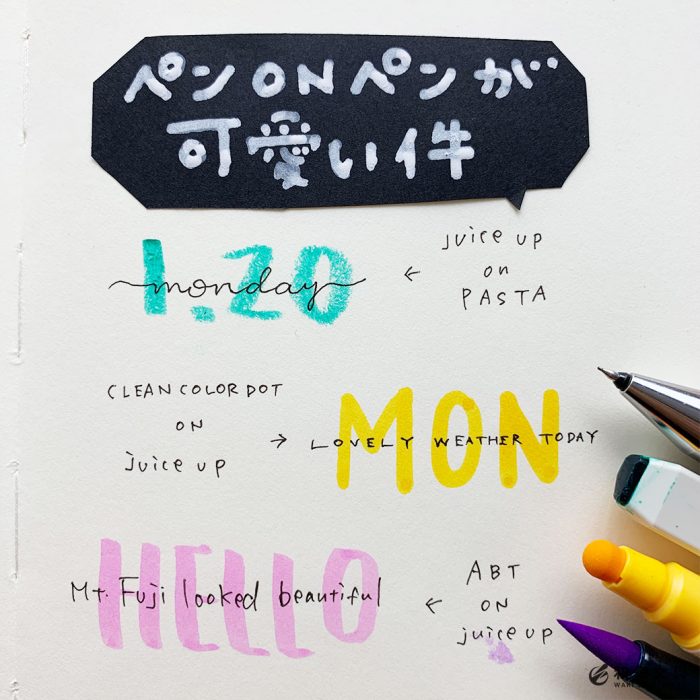 ペンONペンが
可愛い件
1.20
monday
juice up
on
PASTA
CLEAN COLOR DOT
ON
juice up
MON
LOVELY WEATHER TODAY
HELLO
Mt. Fuji looked beautiful
ABT
ON
juice up